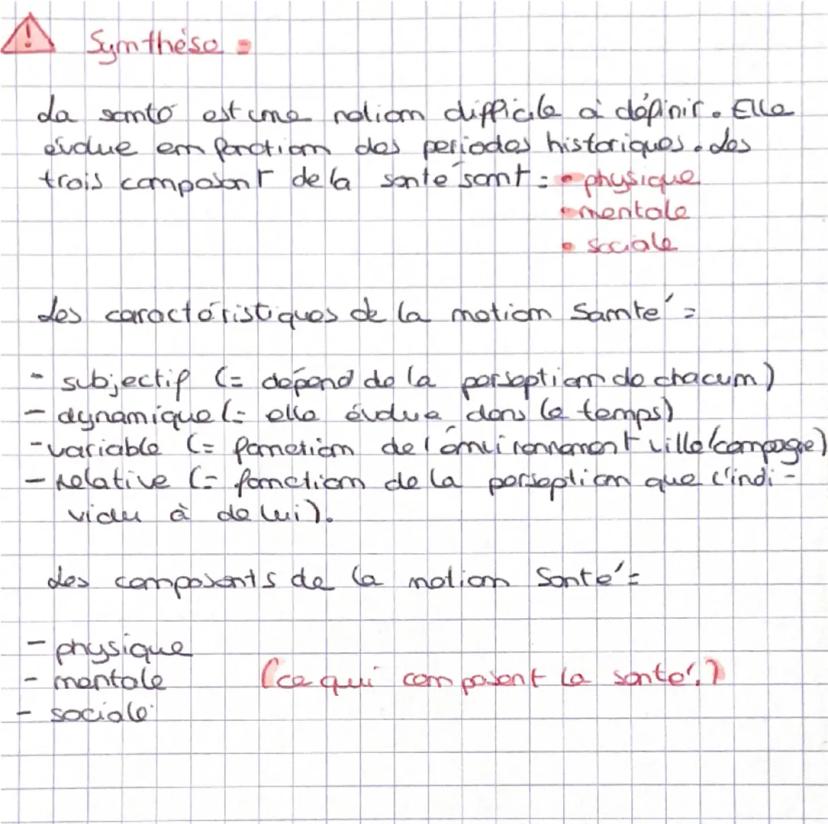 Synthèse :
La santé est une notion difficile à définir. Elle
évolue en fonction des periodes historiques. Les
trois composant de la santé sont : • physique
• mentale
• sociale
Les caractéristiques de la notion Santé :
- subjectif (= dépend de la perseption de chacun)
- dynamique (= elle évolue dans le temps)
- variable (= fonction de l'environnement ville/campagne)
- relative (= fonction de la perseption que l'indi-
vidu à de lui).
Les composants de la notion Santé :
- physique
- mentale (ce qui composent la santé.)
- sociale